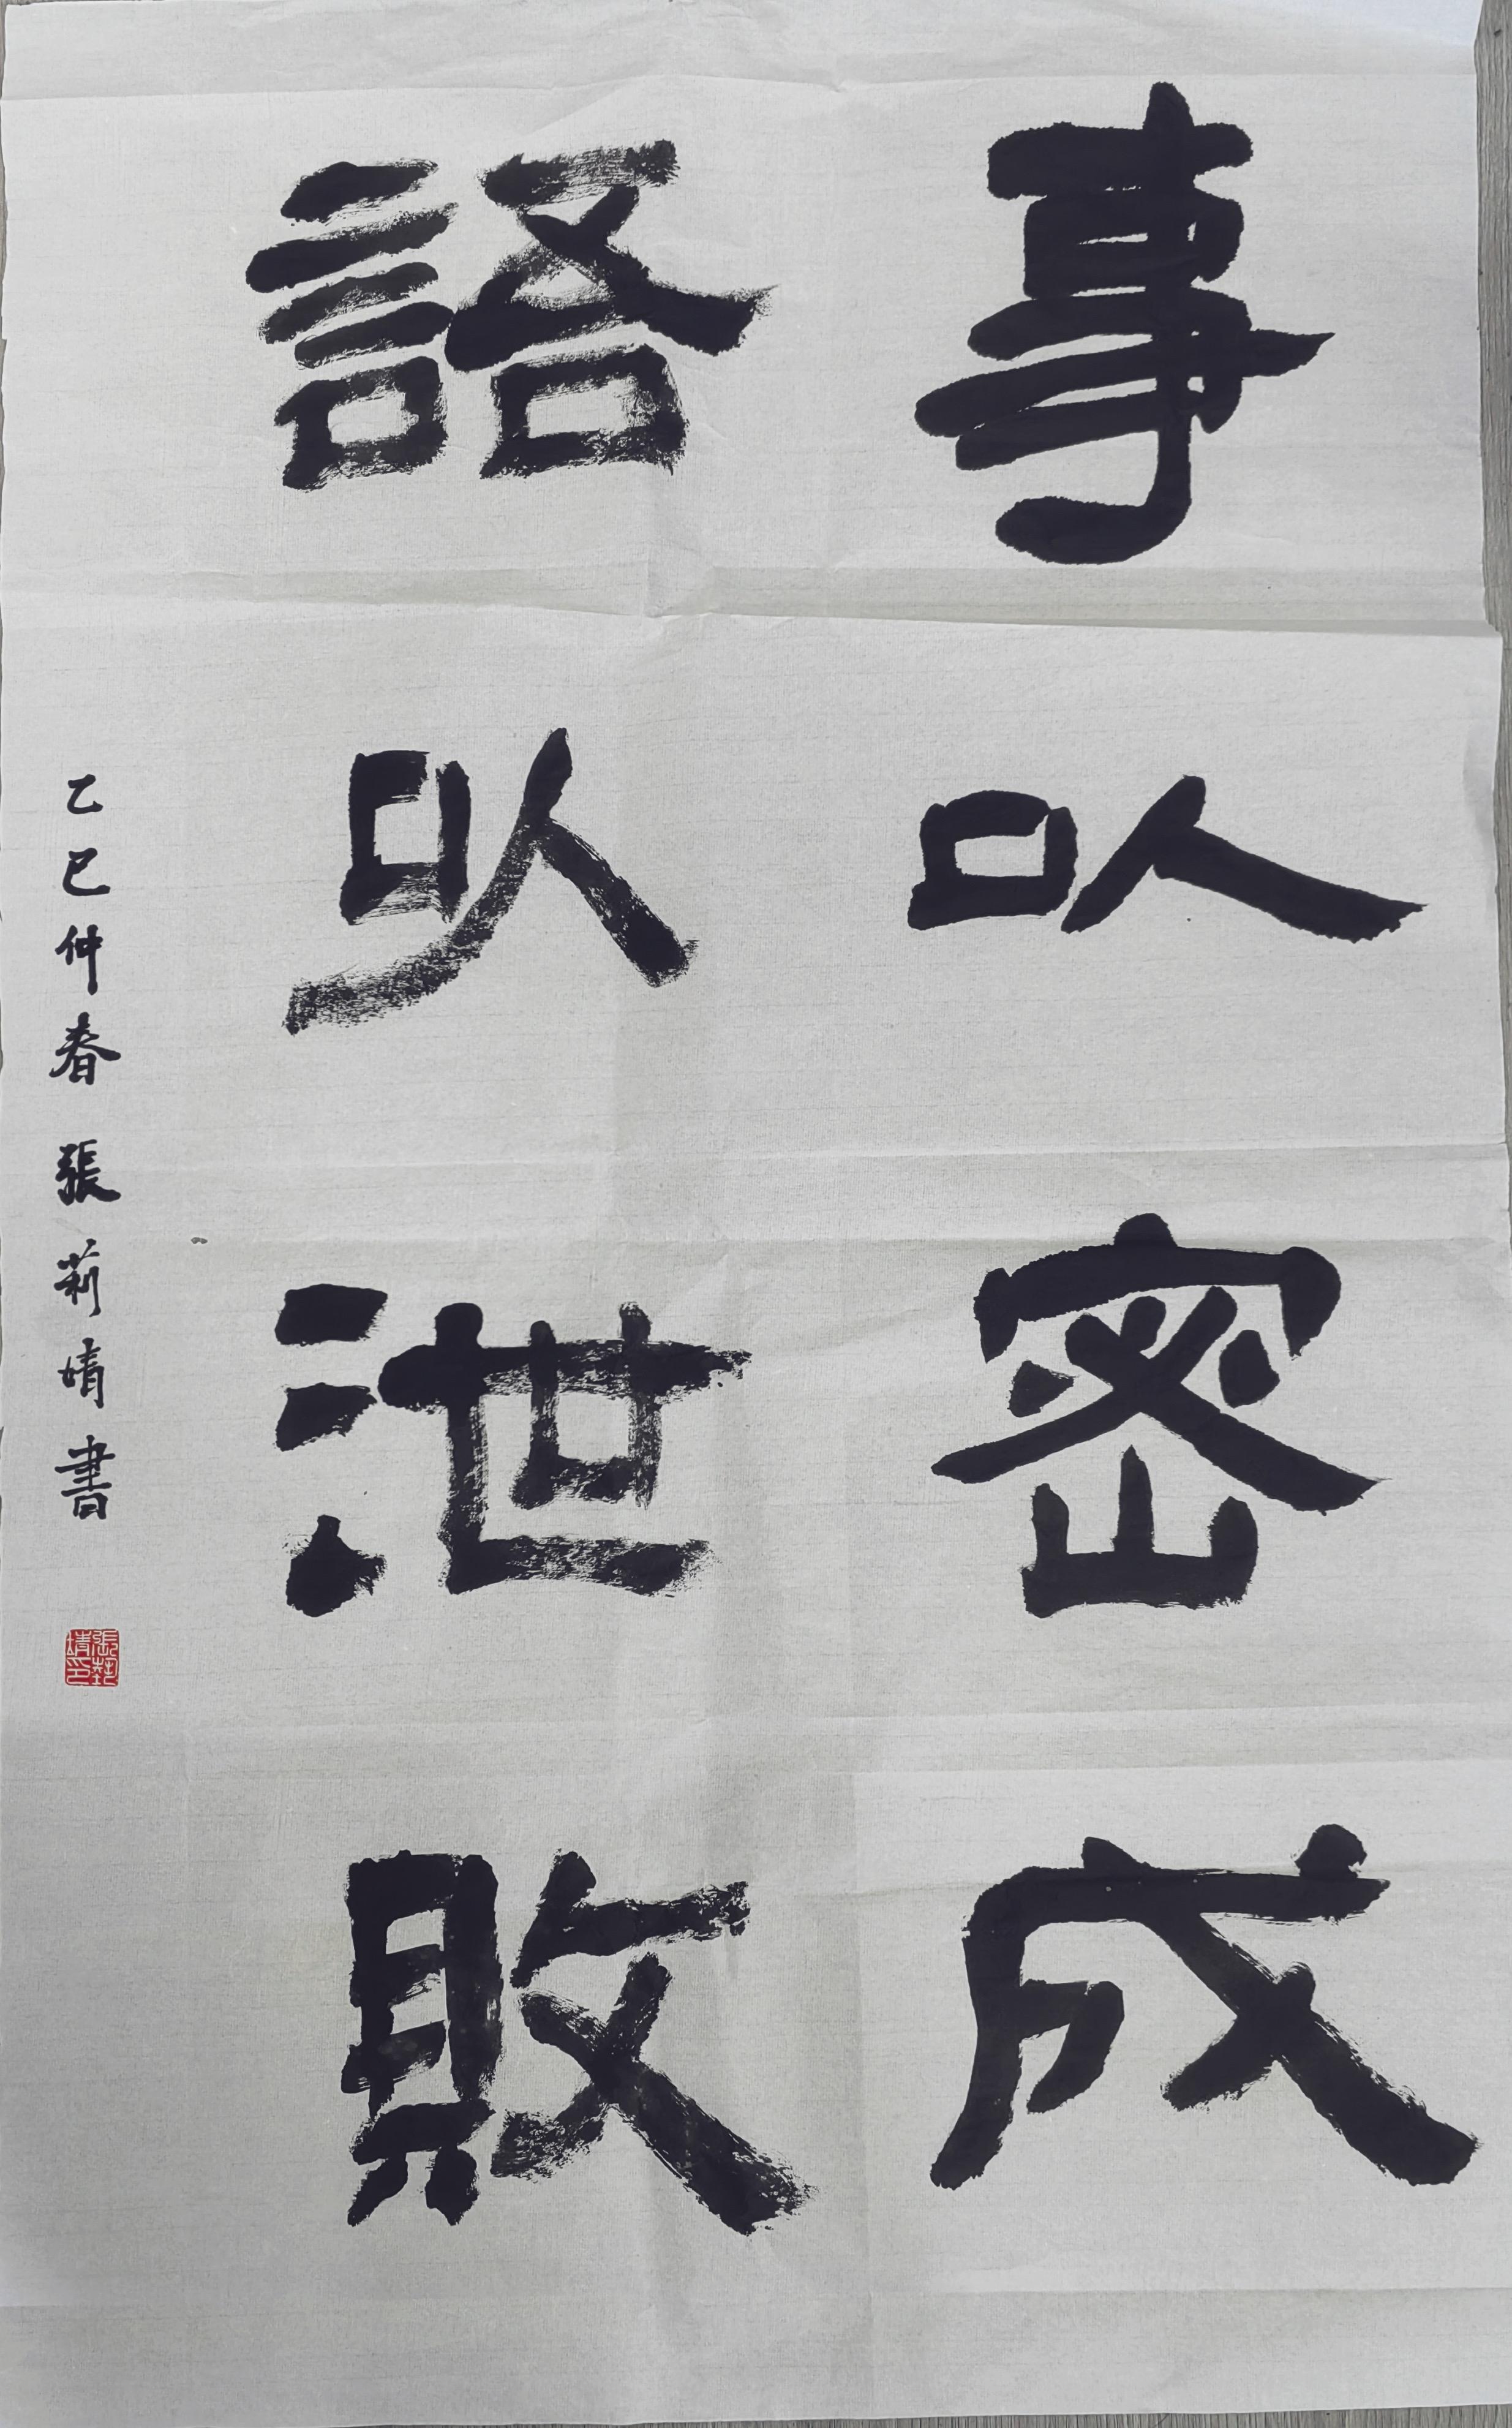 事以密成
語以泄敗
乙巳仲春 張莉婧書